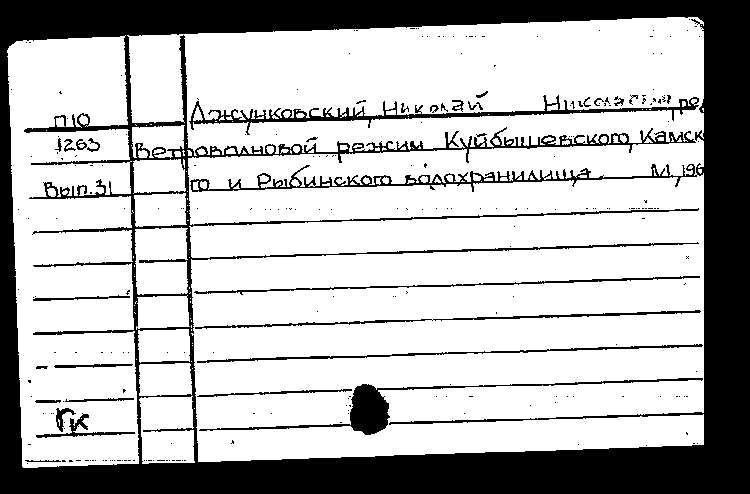 П10 Джунковский, Николай Николаевич, ред
1263 Ветроволновой режим Куйбышевского, Камск
Вып.31 го и Рыбинского водохранилища. М, 196
ГК